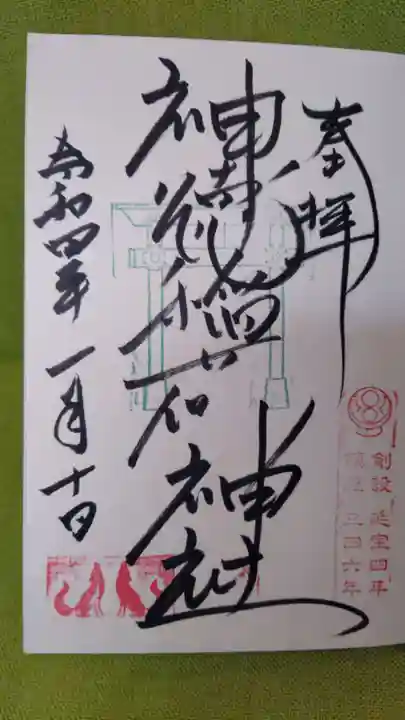 奉拝
稲荷神社
令和四年一月十日
創設 延宝四年
鎮座三四六年